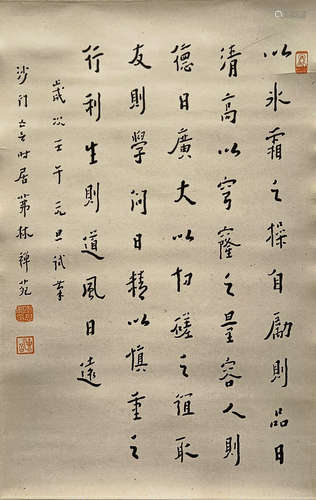 以氷霜之操自勵則品日
清高以穹窿之量容人則
德日廣大以切磋之誼取
友則學問日精以慎重之
行利生則道風日遠
歲次壬午元旦試筆
沙門亡言时居茀林禪苑